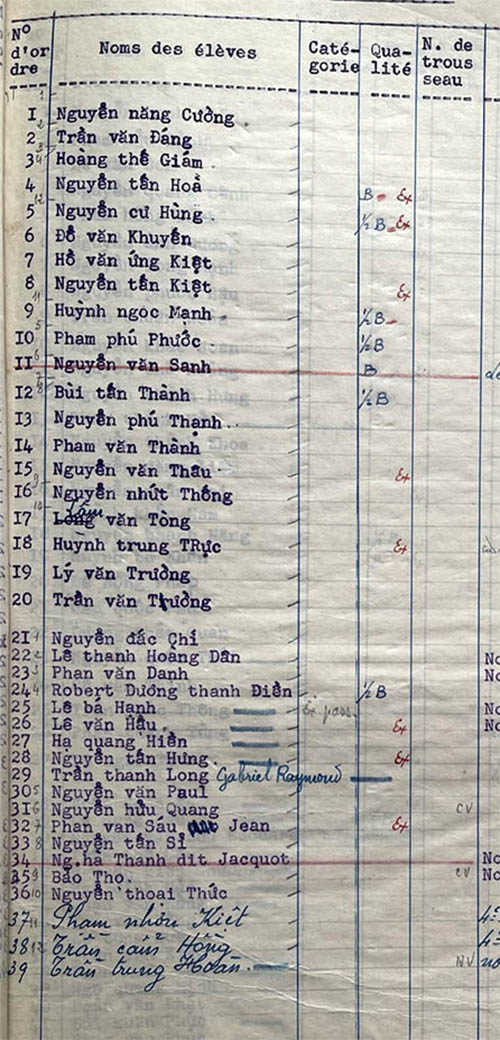 N° d'or dre Noms des élèves Caté- gorie Qua- lité N. de trous seau
1 Nguyễn năng Cường
2 Trần văn Đáng
3 Hoàng thế Giám
4 Nguyễn tấn Hoà B Ex
5 Nguyễn cư Hùng ½ B Ex
6 Đỗ văn Khuyến
7 Hồ văn ứng Kiệt
8 Nguyễn tấn Kiệt Ex
9 Huỳnh ngọc Mạnh ½B
10 Phạm phú Phước ½B
11 Nguyễn văn Sanh B
12 Bùi tấn Thành ½B
13 Nguyễn phú Thạnh
14 Phạm văn Thành
15 Nguyễn văn Thâu Ex
16 Nguyễn nhứt Thống
17 Lâm văn Tòng
18 Huỳnh trung TRực Ex
19 Lý văn Trường
20 Trần văn Trường
21 1 Nguyễn đắc Chí
22 2 Lê thanh Hoàng Dân No
23 3 Phan văn Danh No
24 4 Robert Dương thanh Điền ½B
25 Lê bá Hạnh Ex pass. No
26 Lê văn Hậu Ex No
27 Hạ quang Hiền
28 Nguyễn tấn Hưng Ex
29 Trần thanh Long Gabriel Raymond
30 5 Nguyễn văn Paul
31 6 Nguyễn hữu Quang CV
32 7 Phan van Sáu Jean Ex
33 8 Nguyễn tấn Sĩ
34 Ng.hà Thanh dit Jacquot No
35 9 Bảo Thọ. CV No
36 10 Nguyễn thoại Thức
37 11 Phạm nhơn Kiết
38 12 Trần cẩm Hồng
39 Trần trung Hoàn. NV